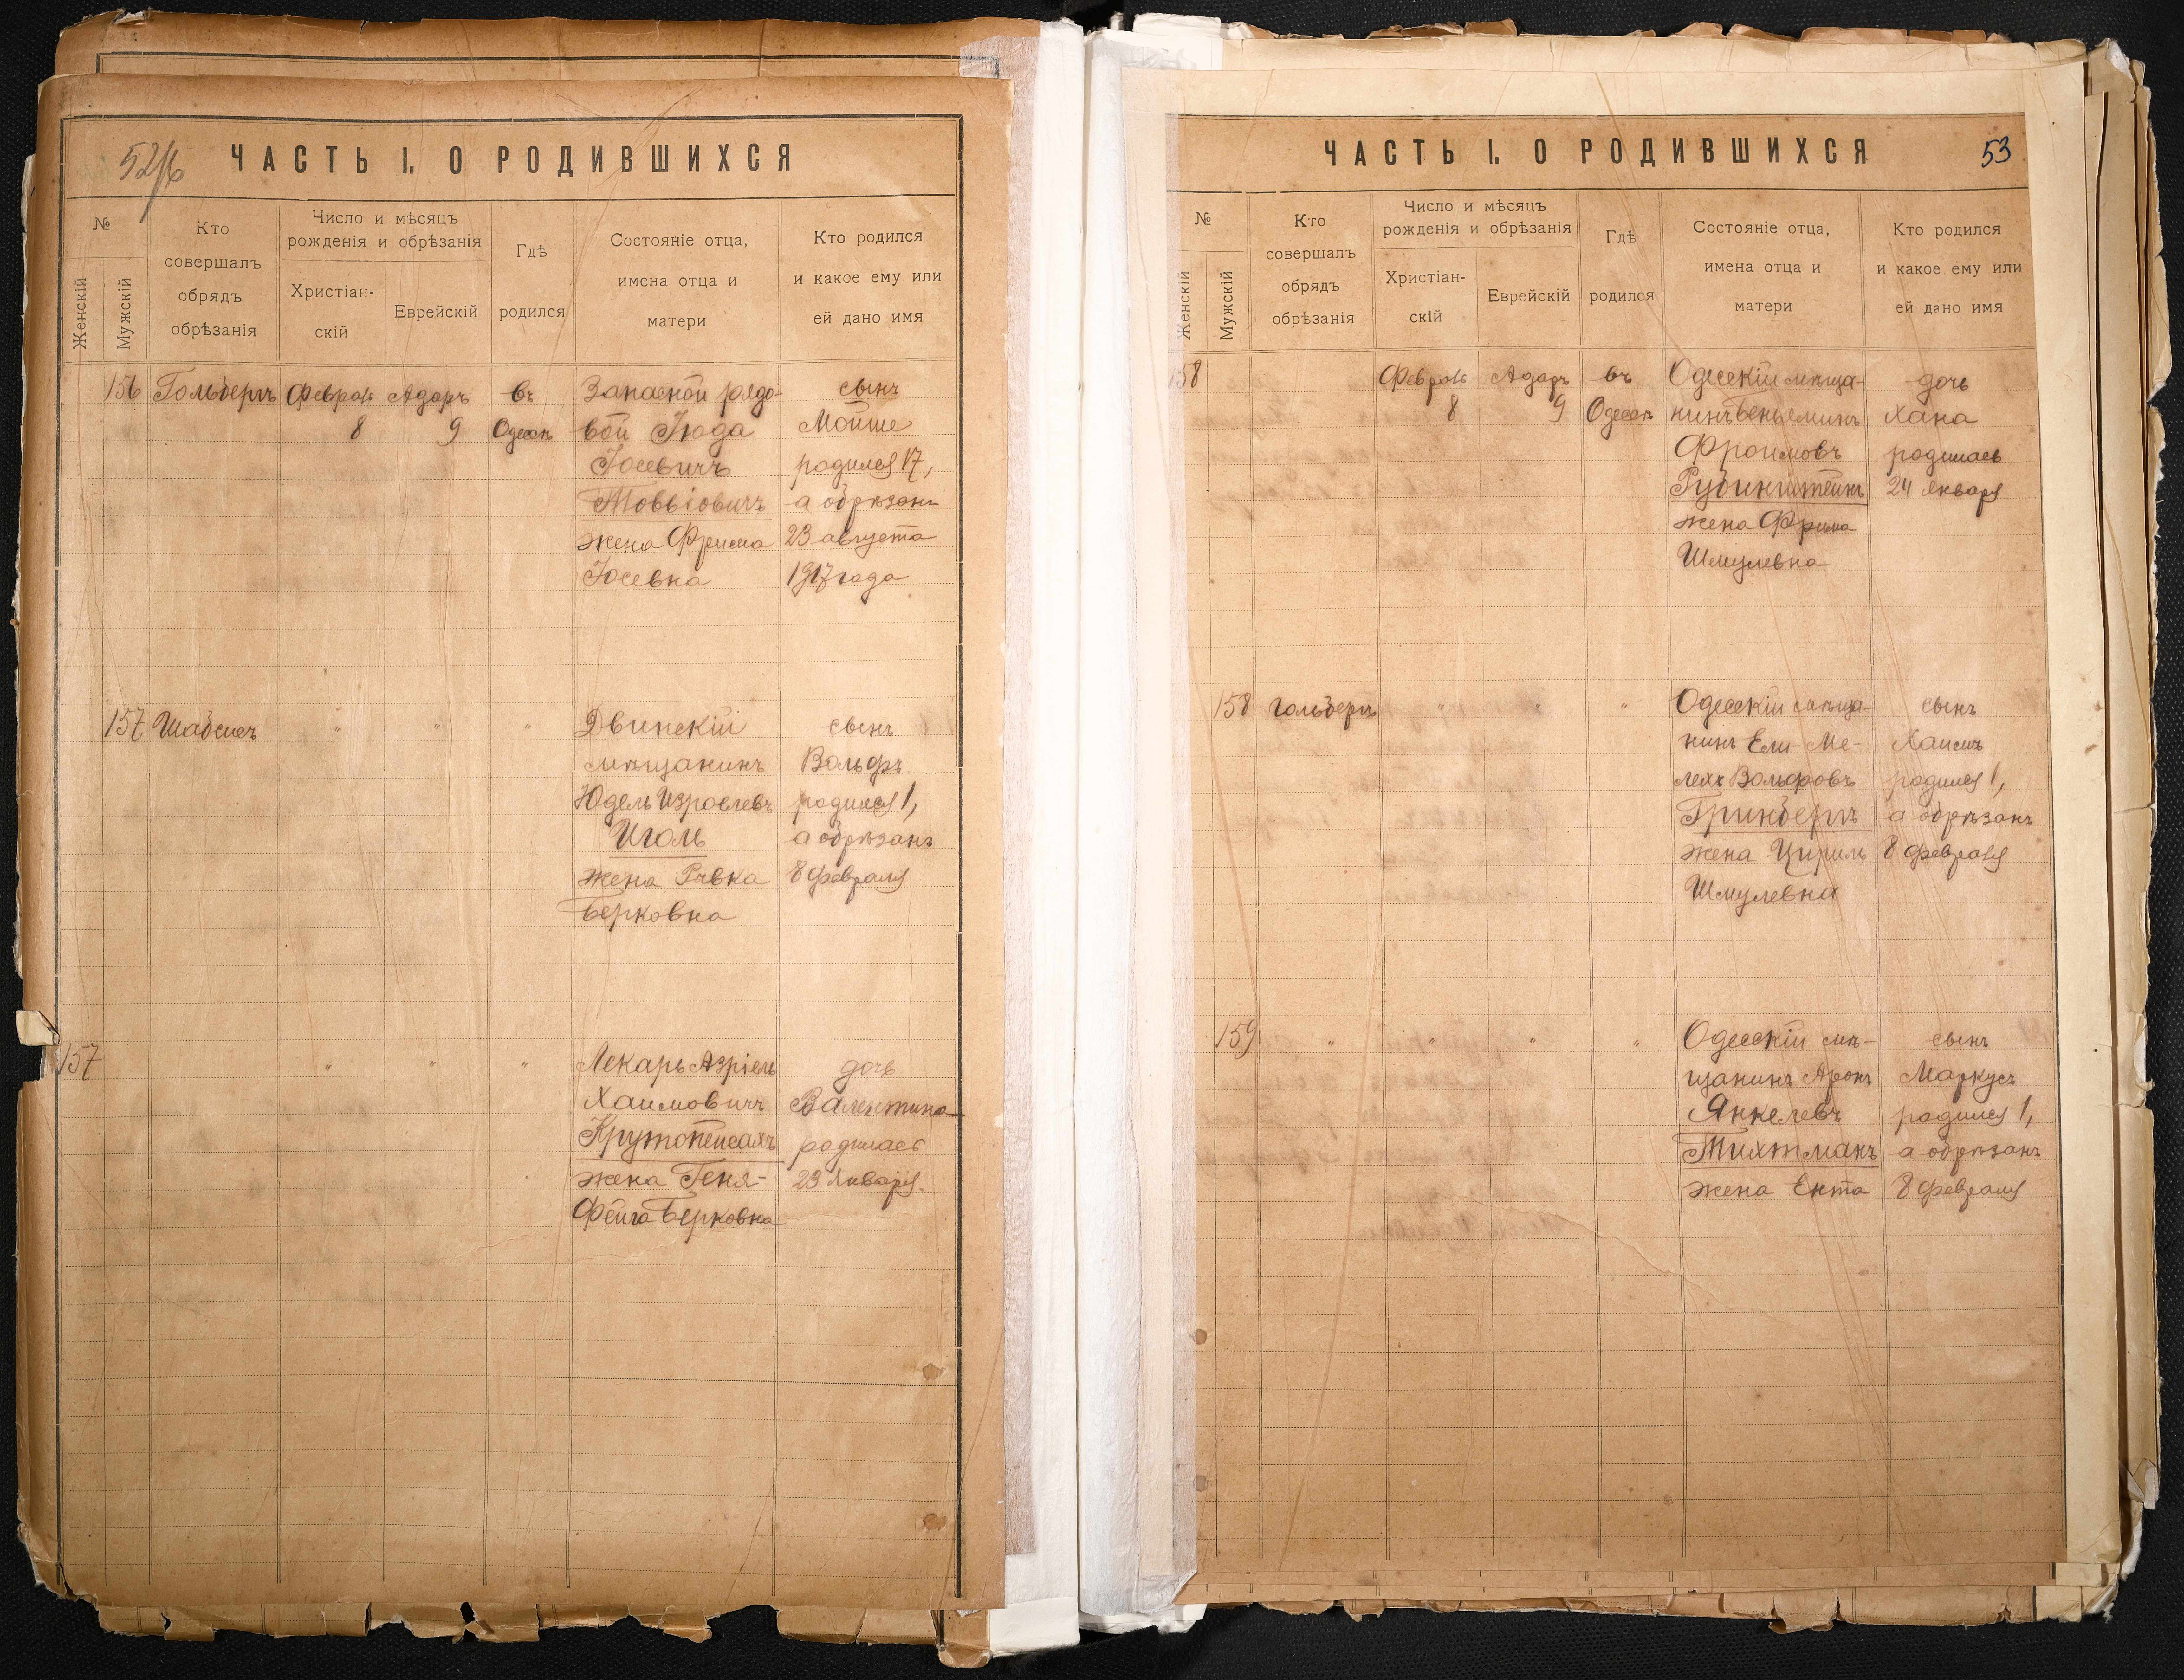 ЧАСТЬ I. О РОДИВШИХСЯ
№
Женскій
Мужскій
Кто
совершалъ
обрядъ
обрѣзанія
Число и мѣсяцъ
рожденія и обрѣзанія
Христіан-
скій
Еврейскій
Гдѣ
родился
Состояніе отца,
имена отца и
матери
Кто родился
и какое ему или
ей дано имя
156 Гольбергъ Февраль Адаръ въ Запасной рядо- сынъ
8 9 Одессѣ вой Іюда Мойше
Іосевичъ родился 17,
Товьіовичъ а обрѣзанъ
жена Фрима 23 августа
Іосевна 1917 года
157 Шабсисъ " " " Двинскій сынъ
мѣщанинъ Вольфъ
Юдель Израелевъ родился 1,
Иголь а обрѣзанъ
жена Ривка 8 февраля
Берковна
157 " " " Лекарь Азріель дочь
Хаимовичъ Валентина
Крутопейсахъ родилась
жена Геня- 23 января.
Фейга Берковна
ЧАСТЬ I. О РОДИВШИХСЯ 53
№
Женскій
Мужскій
Кто
совершалъ
обрядъ
обрѣзанія
Число и мѣсяцъ
рожденія и обрѣзанія
Христіан-
скій
Еврейскій
Гдѣ
родился
Состояніе отца,
имена отца и
матери
Кто родился
и какое ему или
ей дано имя
158 Февраль Адаръ въ Одесскій мѣща- дочь
8 9 Одессѣ нинъ Беньеминъ Хана
Фроимовъ родилась
Рубинштейнъ 24 января
жена Фрима
Шмулевна
158 Гольбергъ " " " Одесскій мѣща- сынъ
нинъ Ели-Ме- Хаимъ
лехъ Вольфовъ родился 1,
Гринбергъ а обрѣзанъ
жена Цириль 8 февраля
Шмулевна
159 " " " " Одесскій мѣ- сынъ
щанинъ Аронъ Маркусъ
Янкелевъ родился 1,
Тихтманъ а обрѣзанъ
жена Ента 8 февраля